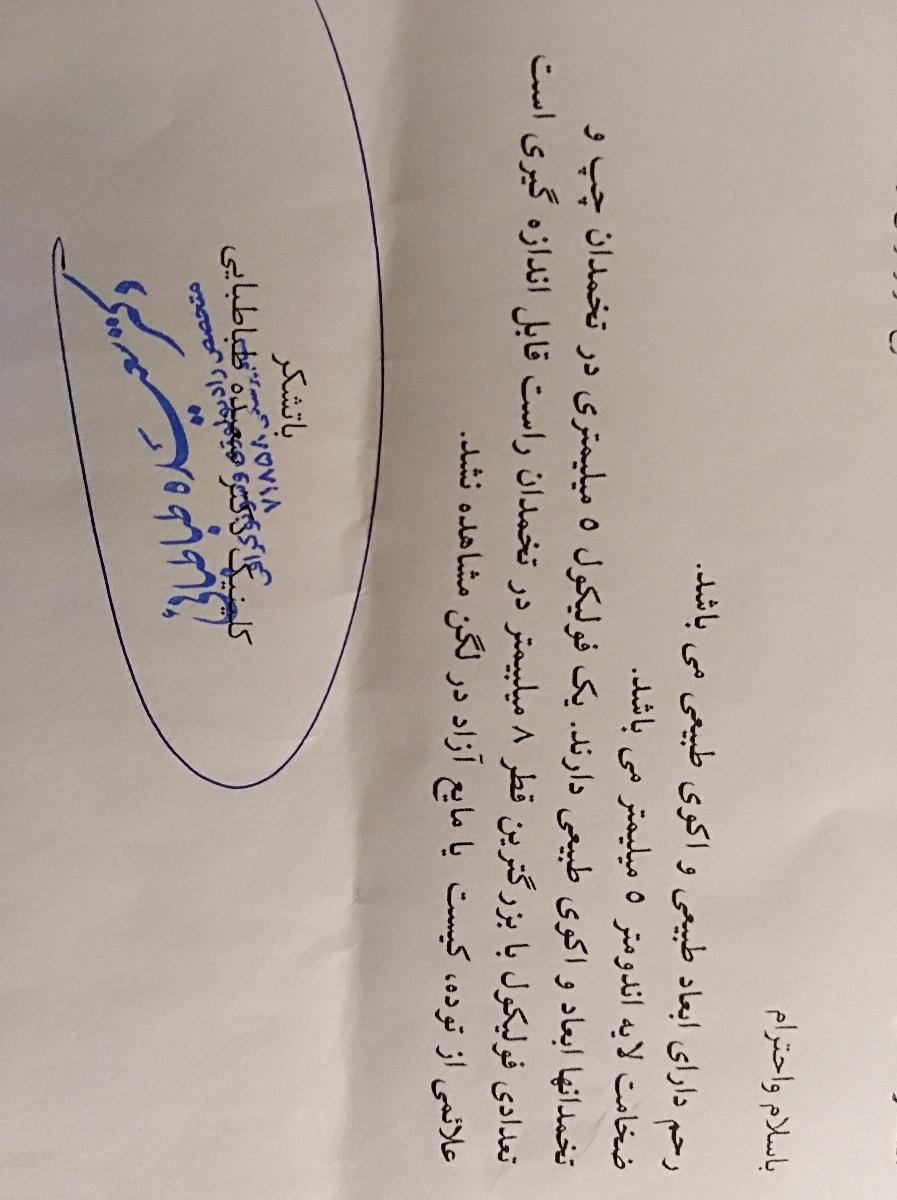 باسلام واحترام
رحم دارای ابعاد طبیعی و اکوی طبیعی می باشد.
ضخامت لایه اندومتر ۵ میلیمتر می باشد.
تخمدانها ابعاد و اکوی طبیعی دارند. یک فولیکول ۵ میلیمتری در تخمدان چپ و
تعدادی فولیکول با بزرگترین قطر ۸ میلیمتر در تخمدان راست قابل اندازه گیری است
علائمی از توده، کیست یا مایع آزاد در لگن مشاهده نشد.
باتشکر
کلینیک دکتر سعیده طباطبایی